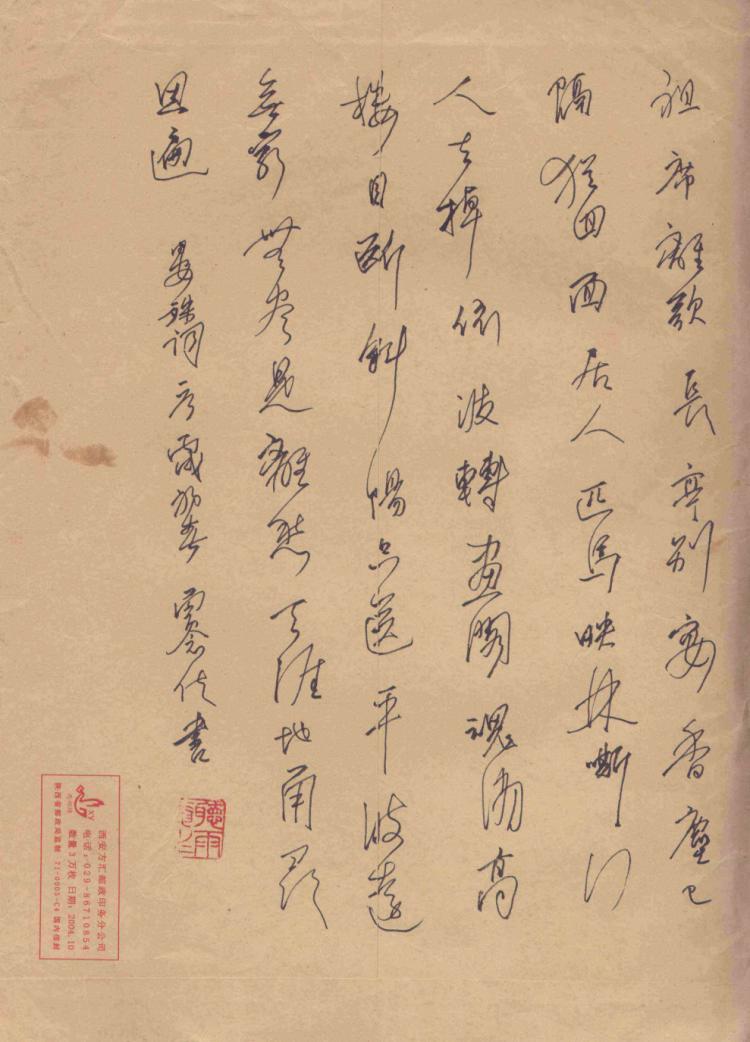 祖席離歌長亭别宴香塵已
隔犹回面居人匹馬映林嘶行
人去棹依波轉畫閣魂消高
楼目断斜陽只送平波遠
無窮無尽是離愁天涯地角尋
思遍 晏殊詞 書
西安方汇邮政印务分公司
电话:029-86710854
数量3万枚 日期:2004.10
陕西省邮政局监制 71-0005-C4 国内信封